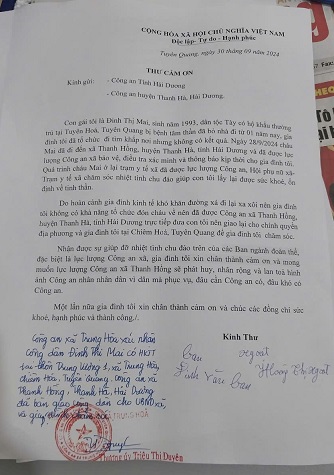 CỘNG HÒA XÃ HỘI CHỦ NGHĨA VIỆT NAM
Độc lập- Tự do - Hạnh phúc
Tuyên Quang, ngày 30 tháng 09 năm 2024
THƯ CẢM ƠN
Kính gửi: - Công an Tỉnh Hải Dương
- Công an huyện Thanh Hà, Hải Dương.
Con gái tôi là Đinh Thị Mai, sinh năm 1993, dân tộc Tày có hộ khẩu thường
trú tại Tuyên Quang bị bệnh tâm thần đã bỏ nhà đi từ 01 năm nay, gia
đình tôi đã tổ chức đi tìm khắp nơi nhưng không có kết quả. Ngày 28/9/2024 cháu
Mai đã đi đến xã Thanh Hồng, huyện Thanh Hà, tỉnh Hải Dương và đã được lực
lượng Công an xã bảo vệ, điều tra xác minh và thông báo kịp thời cho gia đình tôi.
Quá trình cháu Mai ở lại trạm y tế xã đã được lực lượng Công an, Hội phụ nữ xã-
Trạm y tế xã chăm sóc nhiệt tình chu đáo giúp con tôi lấy lại được sức khoẻ, ổn
định về tinh thần.
Do hoàn cảnh gia đình kinh tế khó khăn đường xá đi lại xa xôi nên gia đình
tôi không có khả năng tổ chức đón cháu về nên đã được Công an xã Thanh Hồng,
huyện Thanh Hà, tỉnh Hải Dương trực tiếp đưa con tôi về nhà giao lại cho chính quyền
địa phương và gia đình tôi tại Chiêm Hoá, Tuyên Quang để gia đình tôi chăm sóc.
Nhận được sự giúp đỡ nhiệt tình chu đáo trên của các Ban ngành đoàn thể,
đặc biệt là lực lượng Công an xã, gia đình tôi xin chân thành cảm ơn và mong
muốn lực lượng Công an xã Thanh Hồng sẽ phát huy, nhân rộng và lan toả hình
ảnh Công an nhân dân vì dân mà phục vụ, đâu cần Công an có, đâu khó có
Công an.
Một lần nữa gia đình tôi xin chân thành cảm ơn và chúc các đồng chí sức
khoẻ, hạnh phúc và thành công./.
Kính Thư
Công an xã Trung Hòa xác nhận
công dân Đinh Thị Mai có HKTT
tại thôn Trung, xã Trung Hòa,
Chiêm Hóa, Tuyên Quang. Công an xã
Thanh Hồng, Thanh Hà, Hải Dương
đã bàn giao công dân cho UBND xã,
và gia đình
Đinh Văn
Thượng úy Triệu Thị Duyên